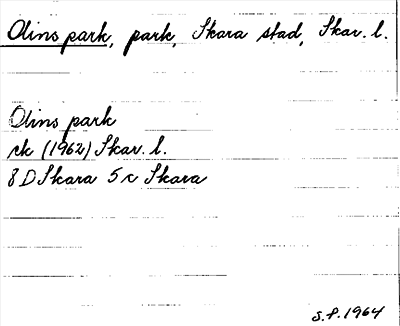 Olins park, park, Skara stad, Skar. l.
Olins park
ek (1962) Skar. l.
8D Skara 5c Skara
S.P. 1964